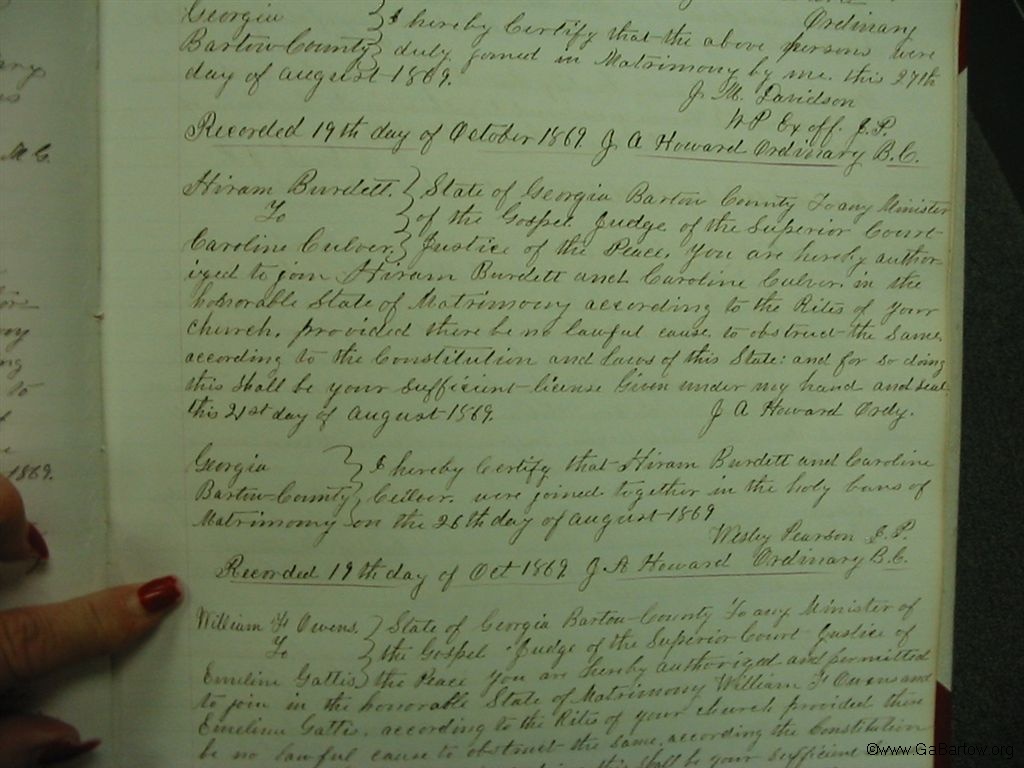 Georgia } I hereby Certify that the above persons were
Ordinary
Bartow County } duly joined in Matrimony by me this 27th
day of august 1869.
J. M. Davidson
N P Ex off. J. P.
Recorded 19th day of October 1869 J A Howard Ordinary B. C.
Hiram Burdett. } State of Georgia Bartow County To any Minister
To } of the Gospel Judge of the Superior Court
Caroline Culver } Justice of the Peace. You are hereby author-
ized to join Hiram Burdett and Caroline Culver in the
honorable State of Matrimony according to the Rites of your
church, provided there be no lawful cause to obstruct the Same,
according to the Constitution and laws of this State: and for so doing
this shall be your sufficient license Given under my hand and seal
this 21st day of august 1869.
J A Howard Ordy.
Georgia } I hereby Certify that Hiram Burdett and Caroline
Bartow County } Culver. were joined together in the holy bans of
Matrimony on the 26th day of august 1869
Wesley Pearson J. P.
Recorded 19th day of Oct 1869 J A Howard Ordinary B. C.
William H Owens. } State of Georgia Bartow County To any Minister of
To } the Gospel Judge of the Superior Court Justice of
Emeline Gattis } the Peace You are hereby authorized and permitted
to join in the honorable State of Matrimony William H Owens and
Emeline Gattis, according to the Rites of your church provided there
be no lawful cause to obstruct the Same, according the Constitution
this shall be your Sufficient
M. C.
to
1869.
©www.GaBartow.org